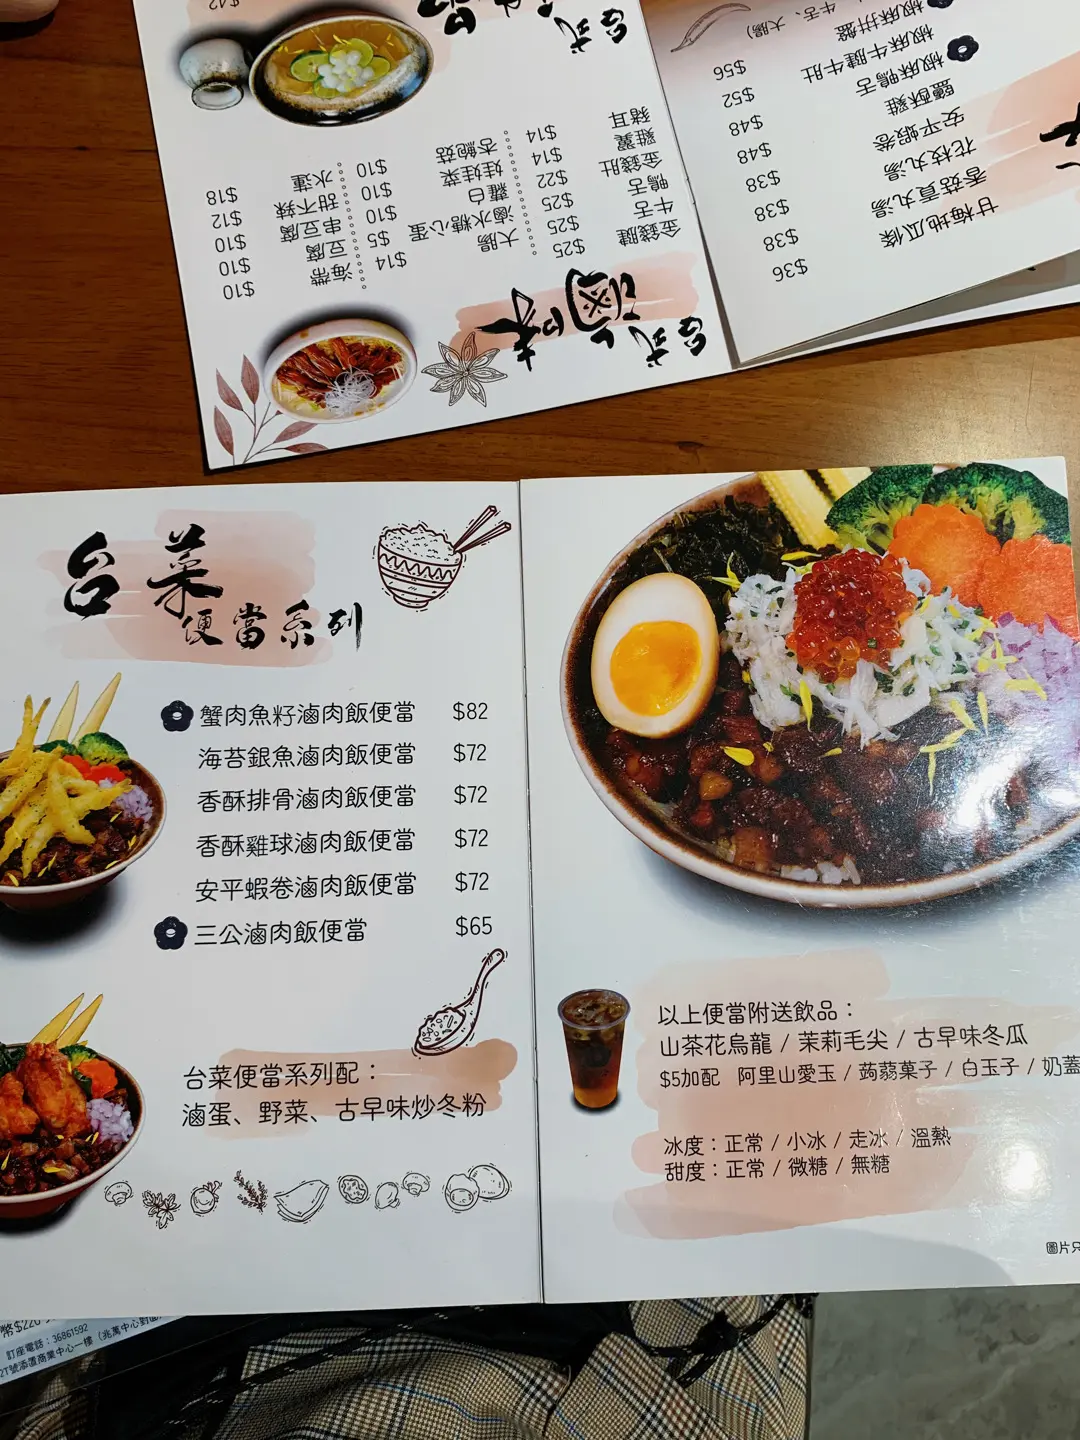 台式
$42
台式滷味
金錢腱 $25
牛舌 $25
鴨舌 $25
金錢肚 $22
雞翼 $14
豬耳 $14
大腸 $14
滷水糖心蛋 $5
蘿白 $10
娃娃菜 $10
杏鮑菇 $10
海帶 $10
豆腐 $10
串豆腐 $10
甜不辣 $12
水蓮 $18
椒麻拼盤
牛舌、大腸)
椒麻牛腱牛肚 $56
椒麻鴨舌 $52
鹽酥雞 $48
安平蝦卷 $48
花枝丸湯 $38
香菇貢丸湯 $38
甘梅地瓜條 $38
$36
台菜
便當系列
蟹肉魚籽滷肉飯便當 $82
海苔銀魚滷肉飯便當 $72
香酥排骨滷肉飯便當 $72
香酥雞球滷肉飯便當 $72
安平蝦卷滷肉飯便當 $72
三公滷肉飯便當 $65
台菜便當系列配：
滷蛋、野菜、古早味炒冬粉
以上便當附送飲品：
山茶花烏龍 / 茉莉毛尖 / 古早味冬瓜
$5加配 阿里山愛玉 / 蒟蒻菓子 / 白玉子 / 奶蓋
冰度：正常 / 小冰 / 走冰 / 溫熱
甜度：正常 / 微糖 / 無糖
圖片只
幣$220
訂座電話：36861592
2T號添置商業中心一樓（兆萬中心對面